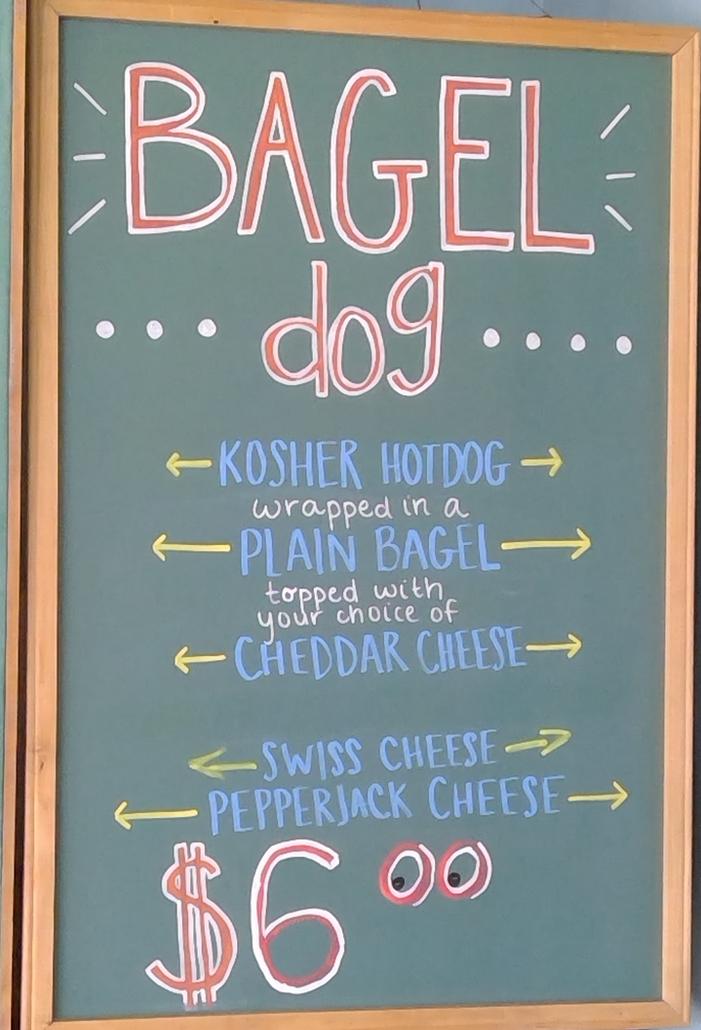 BAGEL
dog
KOSHER HOTDOG
wrapped in a
PLAIN BAGEL
topped with
your choice of
CHEDDAR CHEESE
SWISS CHEESE
PEPPERJACK CHEESE
$6 00